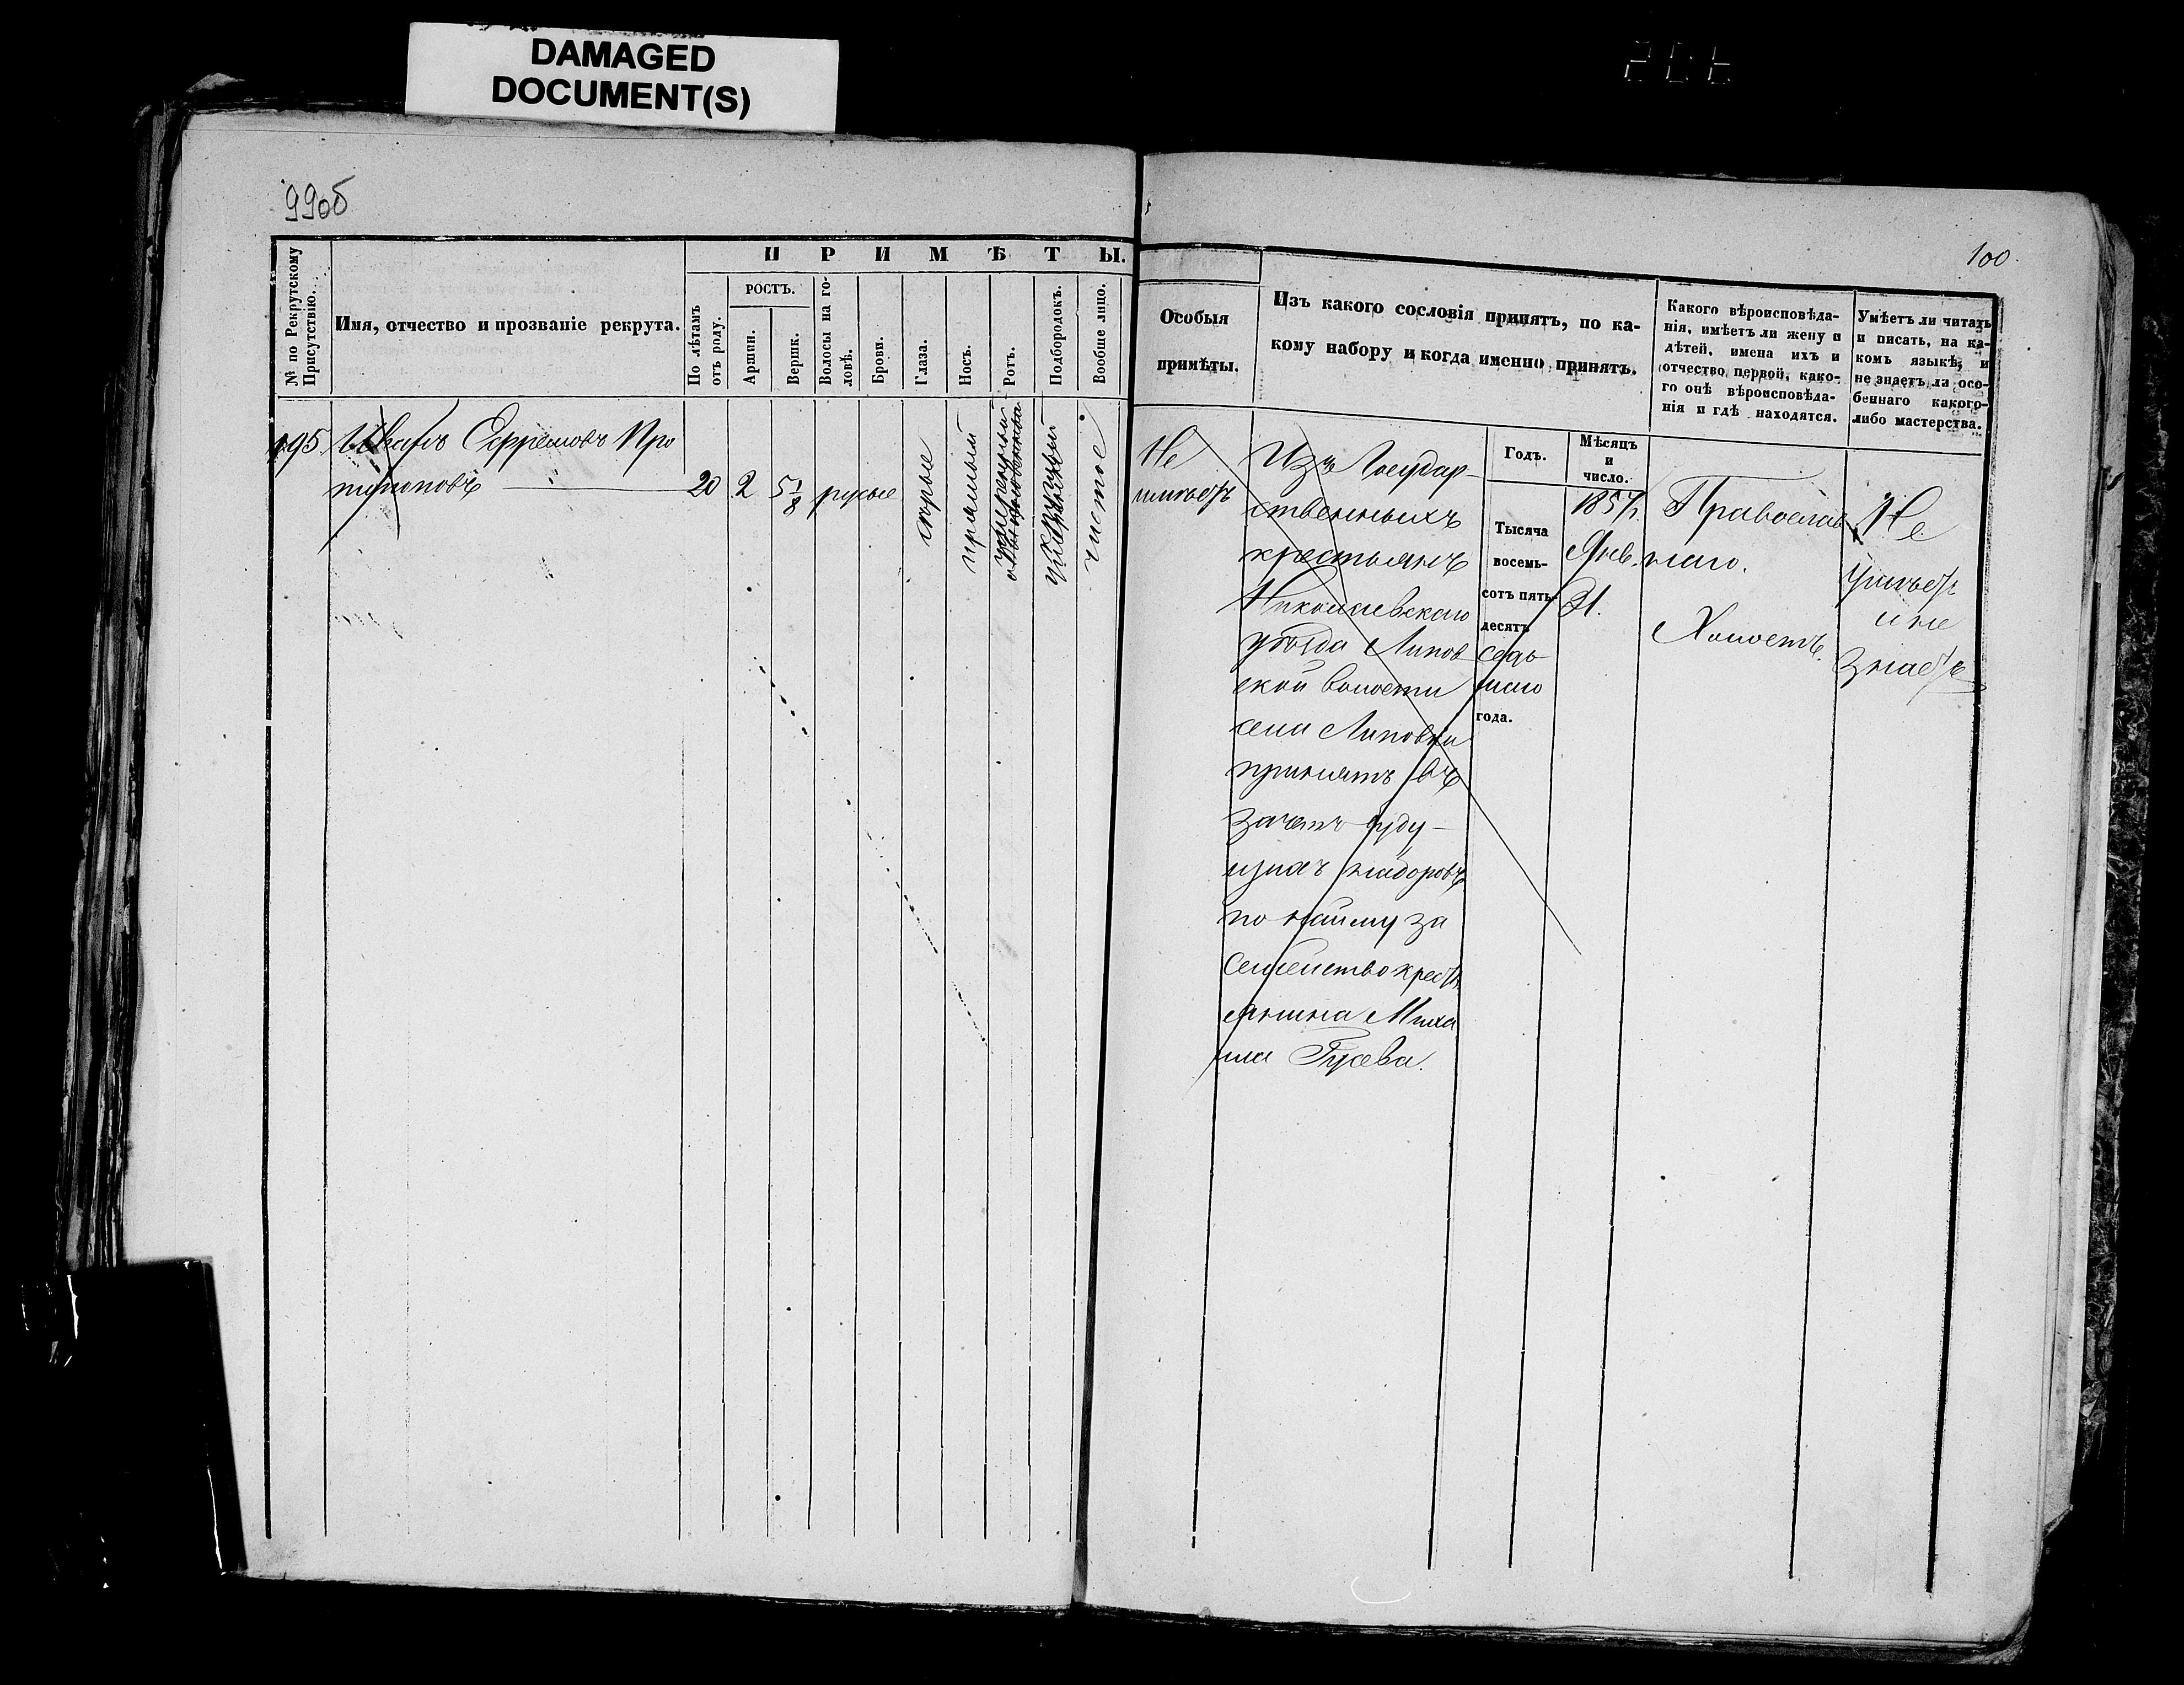 DAMAGED
DOCUMENT(S)
99об
100
ПРИМѢТЫ.
№ по Рекрутскому
Присутствію.
Имя, отчество и прозваніе рекрута.
По лѣтамъ
отъ роду.
РОСТЪ.
Аршин.
Вершк.
Волосы на го-
ловѣ.
Брови.
Глаза.
Носъ.
Ротъ.
Подбородокъ.
Вообще лицо.
Особыя
примѣты.
Изъ какого сословія принятъ, по ка-
кому набору и когда именно принятъ.
Какого вѣроисповѣда-
нія, имѣетъ ли жену и
дѣтей, имена ихъ и
отчество первой, како-
го онѣ вѣроисповѣда-
нія и гдѣ находятся.
Умѣетъ ли читать
и писать, на ка-
комъ языкѣ, и
не знаетъ ли осо-
беннаго какого-
либо мастерства.
195. Иванъ Ефремовъ Про
топоповъ 20 2 5 1/8 русые
сѣрые
прямый
умѣренный
обыкновенный
круглый
чистое
Не
имѣетъ
Изъ Государ-
ственныхъ
крестьянъ
Николаевскаго
уѣзда Липов
ской волости
села Липовки
принятъ въ
зачетъ буду-
щихъ наборовъ
по найму за
семейство крестъ
янина Миха
ила Гусева.
Годъ.
Тысяча
восемь-
сотъ пять-
десятъ
седь
маго
года.
Мѣсяцъ
и
число.
1857.
Янв.
31.
Православ
наго.
Холостъ.
Не
умѣетъ
и не
знаетъ